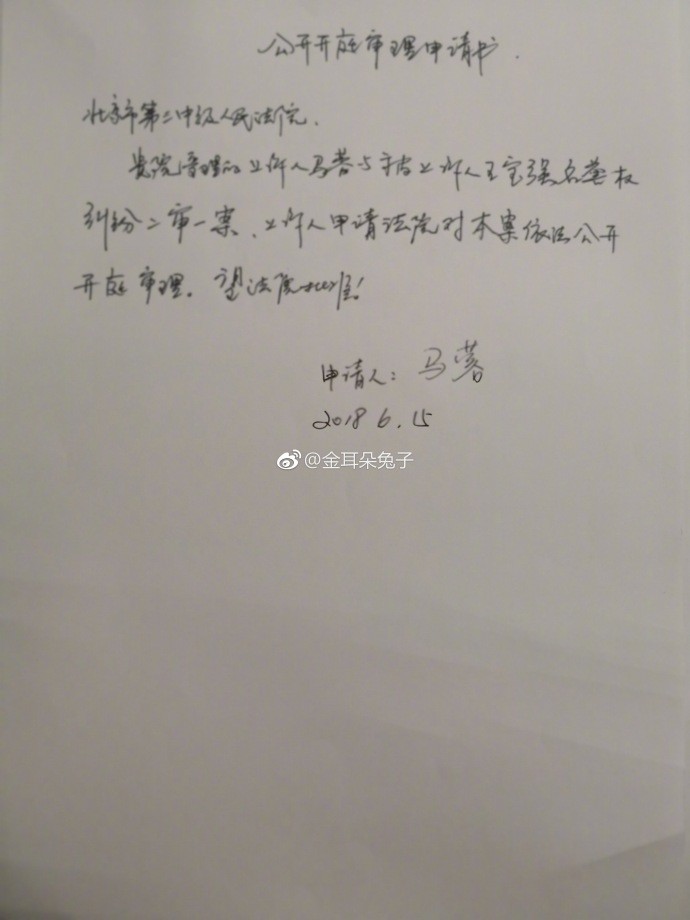 公开开庭审理申请书.
北京市第二中级人民法院.
贵院审理的上诉人马蓉与被上诉人王宝强名誉权
纠纷二审一案、上诉人申请法院对本案依法公开
开庭审理. 望法院批准!
申请人: 马蓉
2018 6.15
@金耳朵兔子